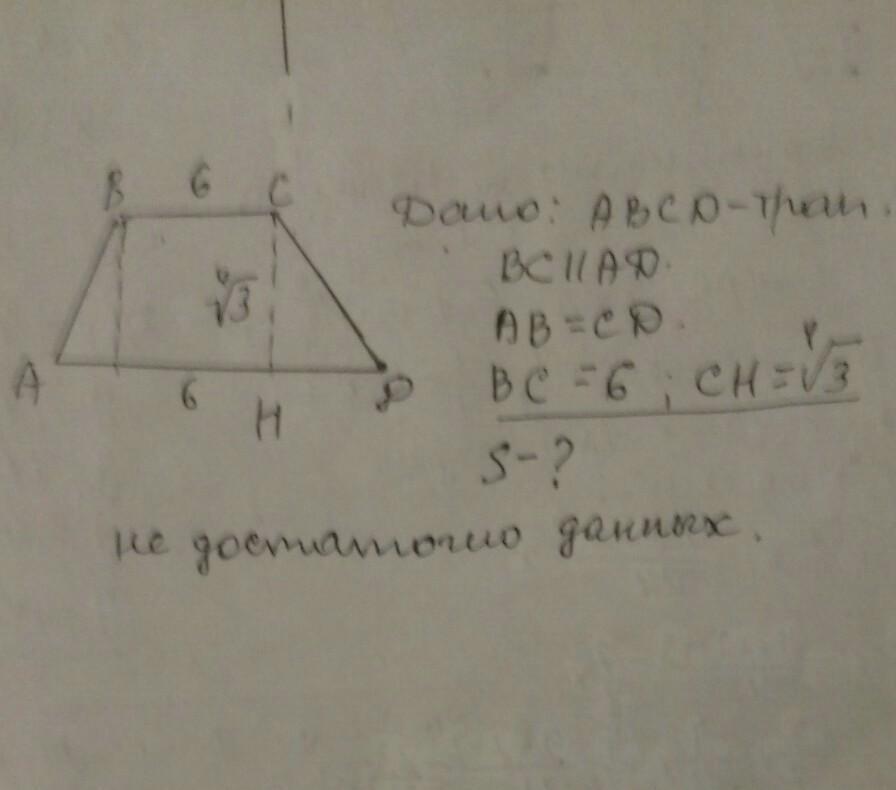 B 6 C
∜3
A 6 H D
Дано: ABCD-трап.
BC || AD.
AB = CD.
BC = 6 ; CH = ∜3
S - ?
не достаточно данных.